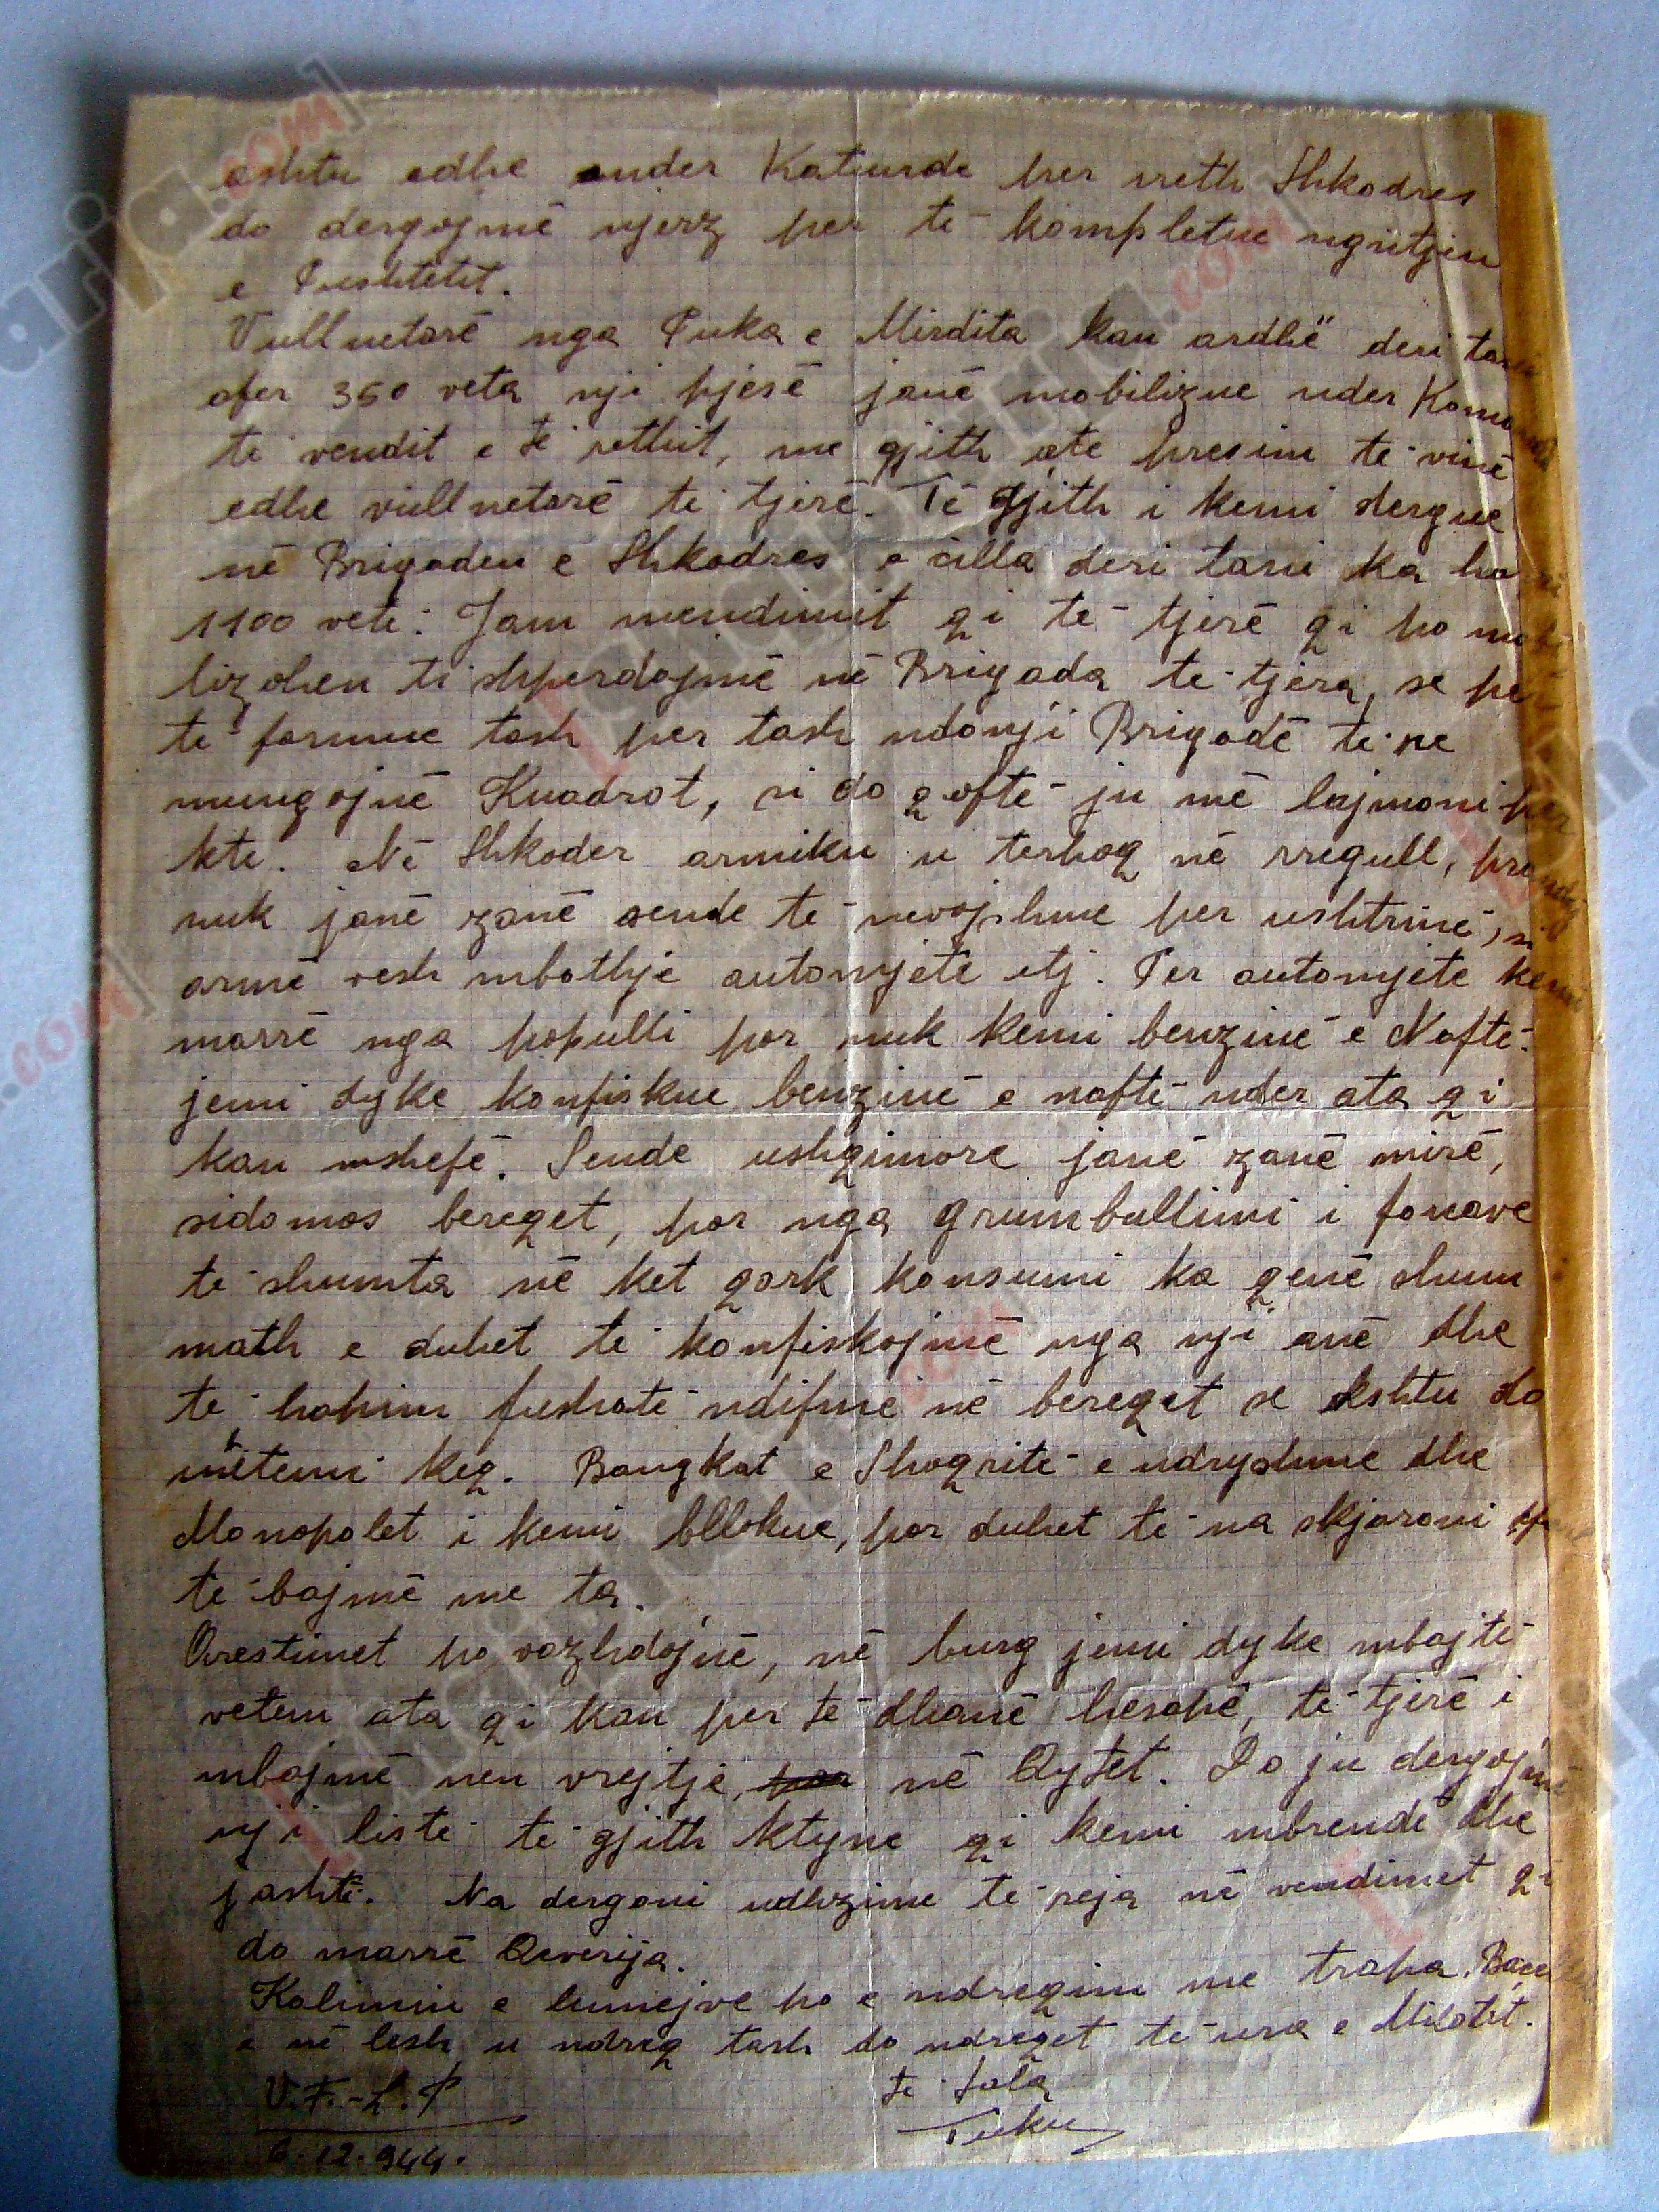 ashtu edhe nder Katunde per rreth Shkodres
do dergojmë njerz per të kompletue ngritjen
e Pushtetit.
Vullnetarë nga Puka e Mirdita kan ardhë deri tani
afer 350 veta nji pjesë janë mobilizue nder
të vendit e të rethit, me gjith ate presim të vinë
edhe vullnetarë të tjerë. Të gjith i kemi dergue
në Brigaden e Shkodres e cilla deri tani ka
1100 vetë. Jam mendimit qi të tjerë qi po mobi
lizohen ti shperdajmë në Brigada të tjera, se për
të formue tash per tash ndonji Brigadë të re
mungojnë Kuadrot, si do qoftë ju më lajmoni për
kte. Në Shkoder armiku u terhoq në rregull, prandaj
nuk janë zanë sende të nevojshme per ushtrinë, si
armë vesh mbathje automjete etj. Per automjete kemi
marrë nga populli por nuk kemi benzinë e Naftë.
jemi dyke konfiskue benzinë e naftë nder ata qi
kan mshefë. Sende ushqimore janë zanë mirë,
sidomos bereqet, por nga grumbullimi i forcave
të shumta në ket qark konsumi ka qenë shum
math e duhet të konfiskojmë nga nji anë dhe
të hapim fushatë ndifme në bereqet se kshtu do
mbetemi keq. Bangkat e Shoqritë e ndryshme dhe
Monopolet i kemi bllokue, por duhet të na skjaroni
të bajmë me ta.
Arestimet po vazhdojnë, në burg jemi dyke mbajtë
vetem ata qi kan per të dhanë hesapë, të tjerë i
mbajmë nen vrejtje, në Qytet. Do ju dergojmë
nji listë të gjith ktyne qi kemi mbrendë dhe
jashtë. Na dergoni udhzime të reja në vendimet qi
do marrë Qeverija.
Kalimin e lumejve po e ndreqim me trapa.
e në Lesh u ndreq tash do ndreqet të ura e Milotit.
V.F.-L.P
6.12.944.
të fala
Tuku